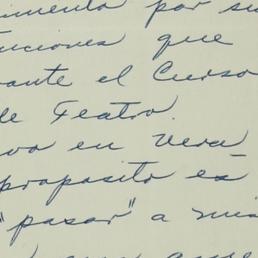 imenta por su
uciones que
ante el Curso
de Teatro.
vo en Vera
proposito es
"pasar" a mis